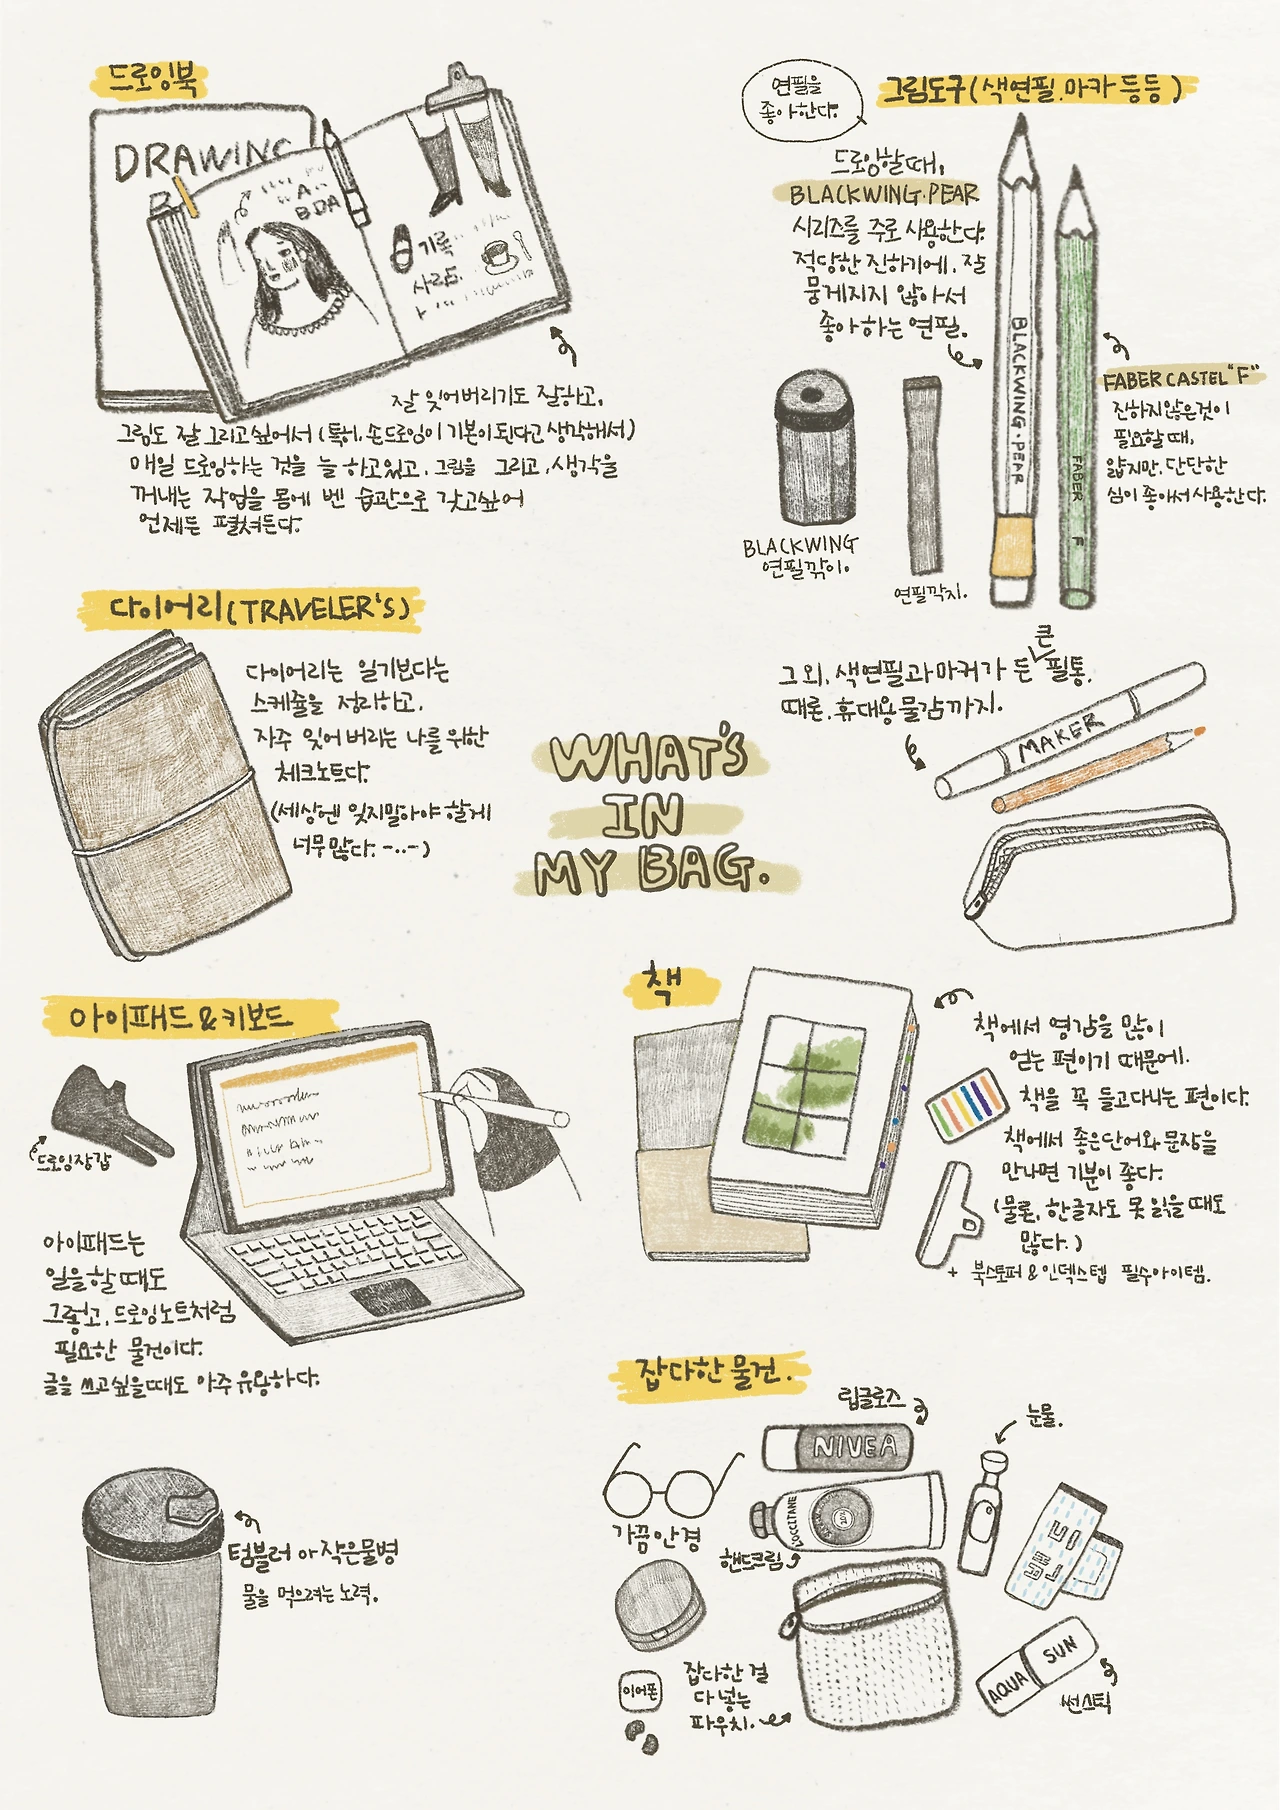 드로잉북
DRAWING
A..
BOA
기록
사라도
잘 잊어버리기도 잘하고,
그림도 잘 그리고싶어서 (특히, 손드로잉이 기본이 된다고 생각해서)
매일 드로잉하는 것을 늘 하고있고, 그림을 그리고, 생각을
꺼내는 작업을 몸에 벤 습관으로 갖고싶어
언제든 펼쳐든다.
연필을
좋아한다.
그림도구(색연필, 마카 등등)
드로잉할때,
BLACKWING·PEAR
시리즈를 주로 사용한다.
적당한 진하기에, 잘
뭉게지지 않아서
좋아하는 연필.
BLACKWING·PEAR
FABER F
FABER CASTEL "F"
진하지않은것이
필요할때,
얇지만, 단단한
심이 좋아서 사용한다.
BLACKWING
연필깎이.
연필깍지.
다이어리(TRAVELER'S)
다이어리는 일기보다는
스케쥴을 정리하고,
자주 잊어버리는 나를 위한
체크노트다.
(세상엔 잊지말아야 할게
너무많다. -..-)
그 외, 색연필과 마커가 든 큰 필통,
때론, 휴대용물감까지.
MAKER
WHAT'S
IN
MY BAG.
아이패드&키보드
드로잉장갑
아이패드는
일을할때도
그렇고, 드로잉노트처럼
필요한 물건이다.
글을 쓰고싶을때도 아주 유용하다.
책
책에서 영감을 많이
얻는 편이기 때문에,
책을 꼭 들고다니는 편이다.
책에서 좋은단어와 문장을
만나면 기분이 좋다.
(물론, 한글자도 못 읽을때도
많다.)
+ 북스토퍼 & 인덱스텝 필수아이템.
텀블러 or 작은물병
물을 먹으려는 노력.
잡다한 물건.
립글로즈
NIVEA
눈물.
가끔안경
L'OCCITANE
핸드크림
이어폰
잡다한 걸
다 넣는
파우치.
AQUA SUN
썬스틱